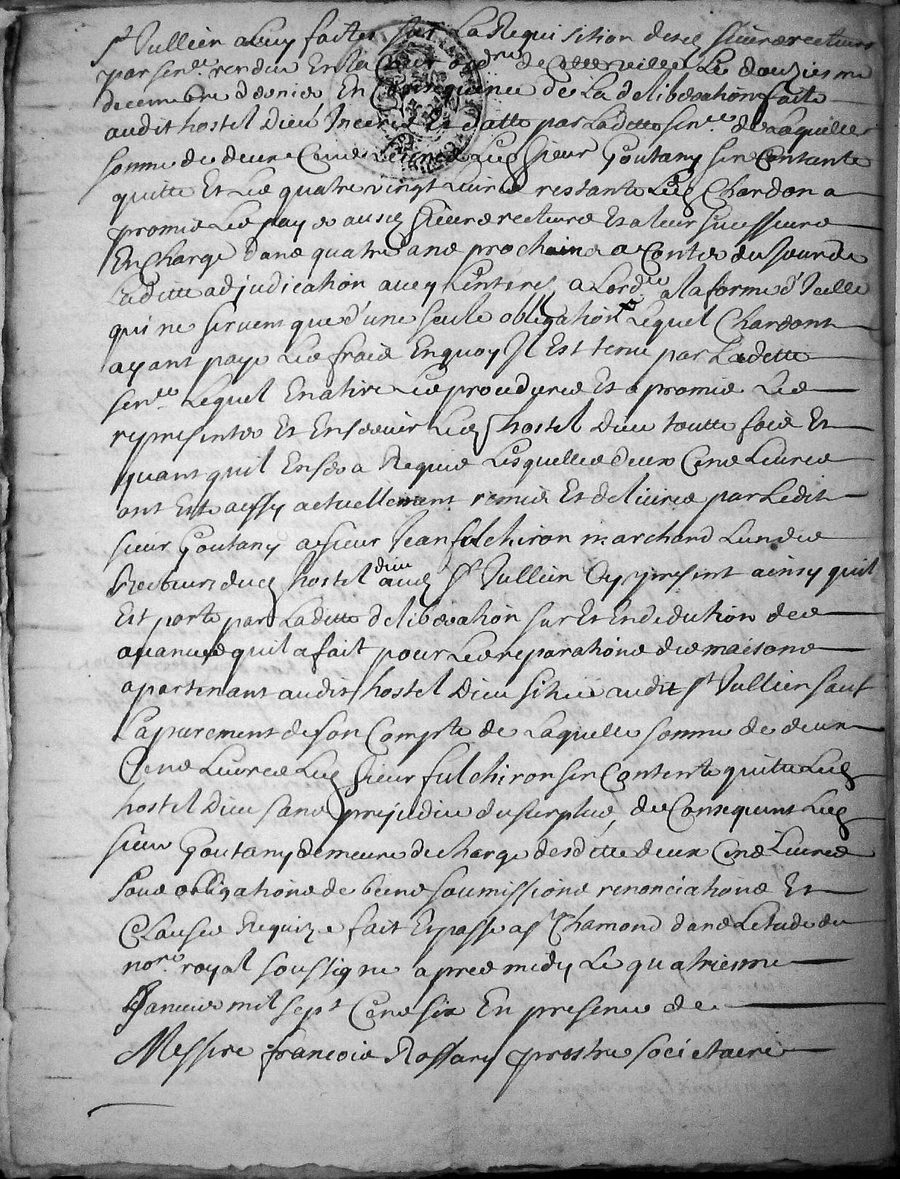 St Jullien a luy faites sur La Requisition desd sieurs recteurs
par sence rendue En la Cour de Le douziesme
decembre dernier En Consequence de La deliberation faite
audit hostel Dieu datte par Ladette senee de Laquelle
somme de deux Cens Livres Led Sieur Goutany se Contante
quitte Et Les quatre vingt Livres restante Led Chardon a
promis Les payer ausd sieurs recteurs Et a leur successeurs
En Charge dans quatre ans prochains a Conter du jour de
Ladette adjudication avec L'interest a Lordre a la forme d'Icelle
qui ne servent que d'une seule obligation Lequel Chardont
ayant paye Les frais Enquoy Il Est tenu par Ladette
senee Lequel En a tire Les procedures Et a promis Les
representer Et En servir Led hostel Dieu toutte fois Et
quant quil En sera Requis Lesquelles deux Cens Livres
ont Este aussy actuellement remis Et delivres par Ledit
sieur Goutany a sieur Jean fulchiron marchand Lun des
Recteurs dud hostel dieu dud St Jullien Cy present ainsy quil
Est porte par Ladette deliberation sur Et En dedution des
avances quil a fait pour Les reparations des maisons
apartenant audit hostel Dieu sizes audit St Jullien sauf
Laparement de son Compte de Laquelle somme de deux
Cens Livres Led Sieur fulchiron se Contente quitte Led
hostel Dieu sans prejudice du surplus, de Consequent Led
sieur Goutany demeure decharge desdittes deux Cens Livres
sous obligations de biens soumissions renonciations Et
Clauses Requizes fait Et passe a St Chamond dans Letude du
nore royal soussigne apres midy Le quatriesme
Janvier mil sept Cens six En presence de
Messire francois Rossary prestre societaire